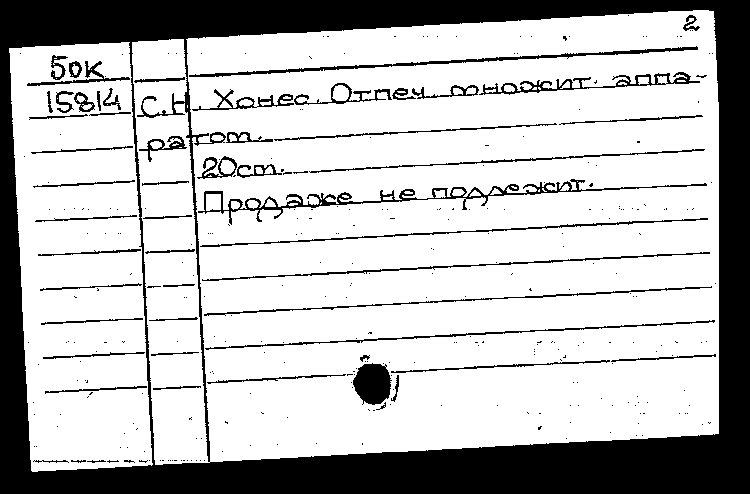 2
50к
15814 С.Н. Хонео. Отпеч. множит. аппа-
ратом.
20см.
Продаже не подлежит.